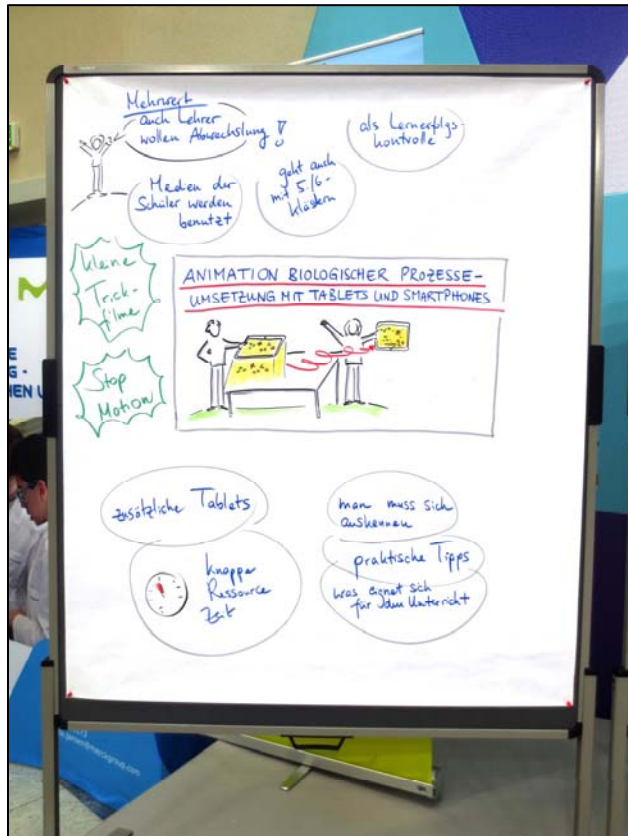 Mehrwert
auch Lehrer
wollen Abwechslung!
als Lernerfolgs-
kontrolle
Medien der
Schüler werden
benutzt
geht auch
mit 5./6.-
klässlern
kleine
Trick-
filme
ANIMATION BIOLOGISCHER PROZESSE-
UMSETZUNG MIT TABLETS UND SMARTPHONES
Stop
Motion
zusätzliche Tablets
man muss sich
auskennen
knappe
Ressource
Zeit
praktische Tipps
was eignet sich
für den Unterricht